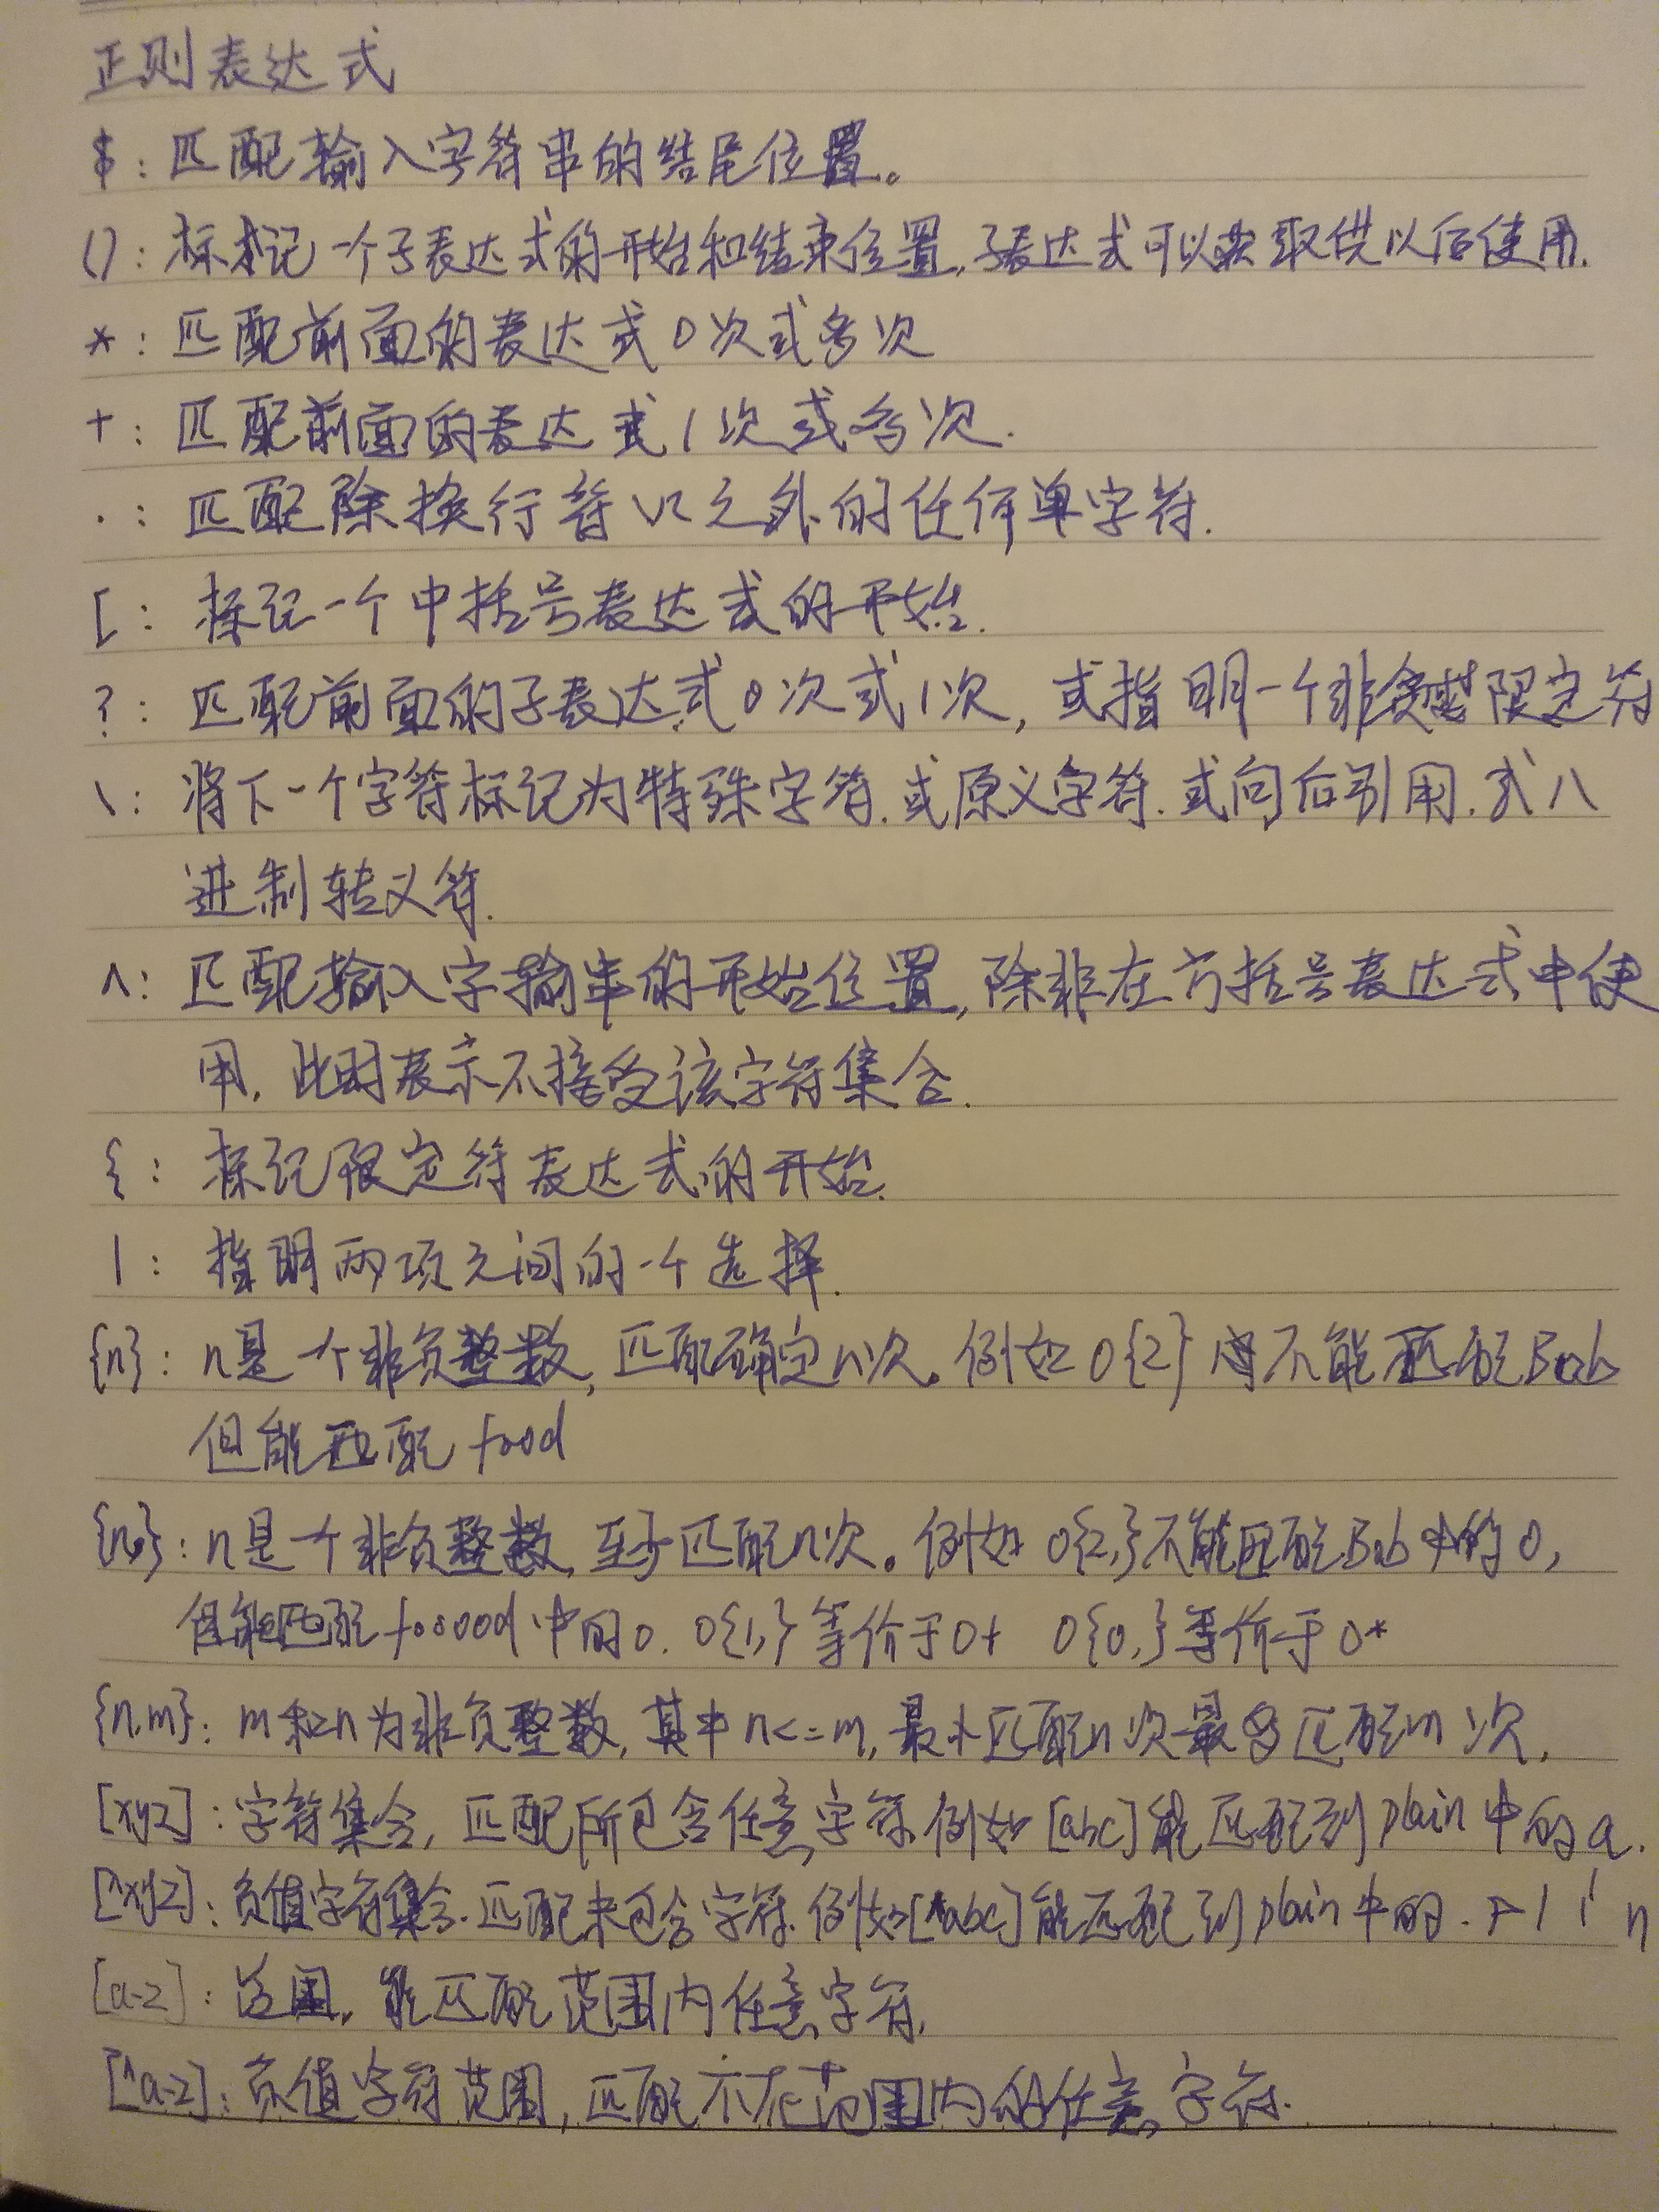 正则表达式
$: 匹配输入字符串的结尾位置。
(): 标记一个子表达式的开始和结束位置,子表达式可以获取供以后使用.
*: 匹配前面的表达式0次或多次
+: 匹配前面的表达式1次或多次.
.: 匹配除换行符\n之外的任何单字符.
[: 标记一个中括号表达式的开始.
?: 匹配前面的子表达式0次或1次, 或指明一个非贪婪限定符
\: 将下一个字符标记为特殊字符.或原义字符.或向后引用.或八
进制转义符.
^: 匹配输入字输串的开始位置,除非在方括号表达式中使
用, 此时表示不接受该字符集合.
{: 标记限定符表达式的开始.
|: 指明两项之间的一个选择.
{n}: n是一个非负整数, 匹配确定n次。例如 o{2} 不能匹配Bob
但能匹配 food
{n,}: n是一个非负整数, 至少匹配n次。例如 o{2,}不能匹配Bob中的o,
但能匹配foooood中的o. o{1,}等价于o+ o{0,}等价于o*
{n,m}: m和n为非负整数, 其中n<=m, 最小匹配n次最多匹配m次.
[xyz]: 字符集合, 匹配所包含任意字符.例如[abc]能匹配到plain中的a.
[^xyz]: 负值字符集合.匹配未包含字符.例如[^abc]能匹配到plain中的. p l i n
[a-z]: 范围, 能匹配范围内任意字符.
[^a-z]: 负值字符范围, 匹配不在范围内的任意字符.